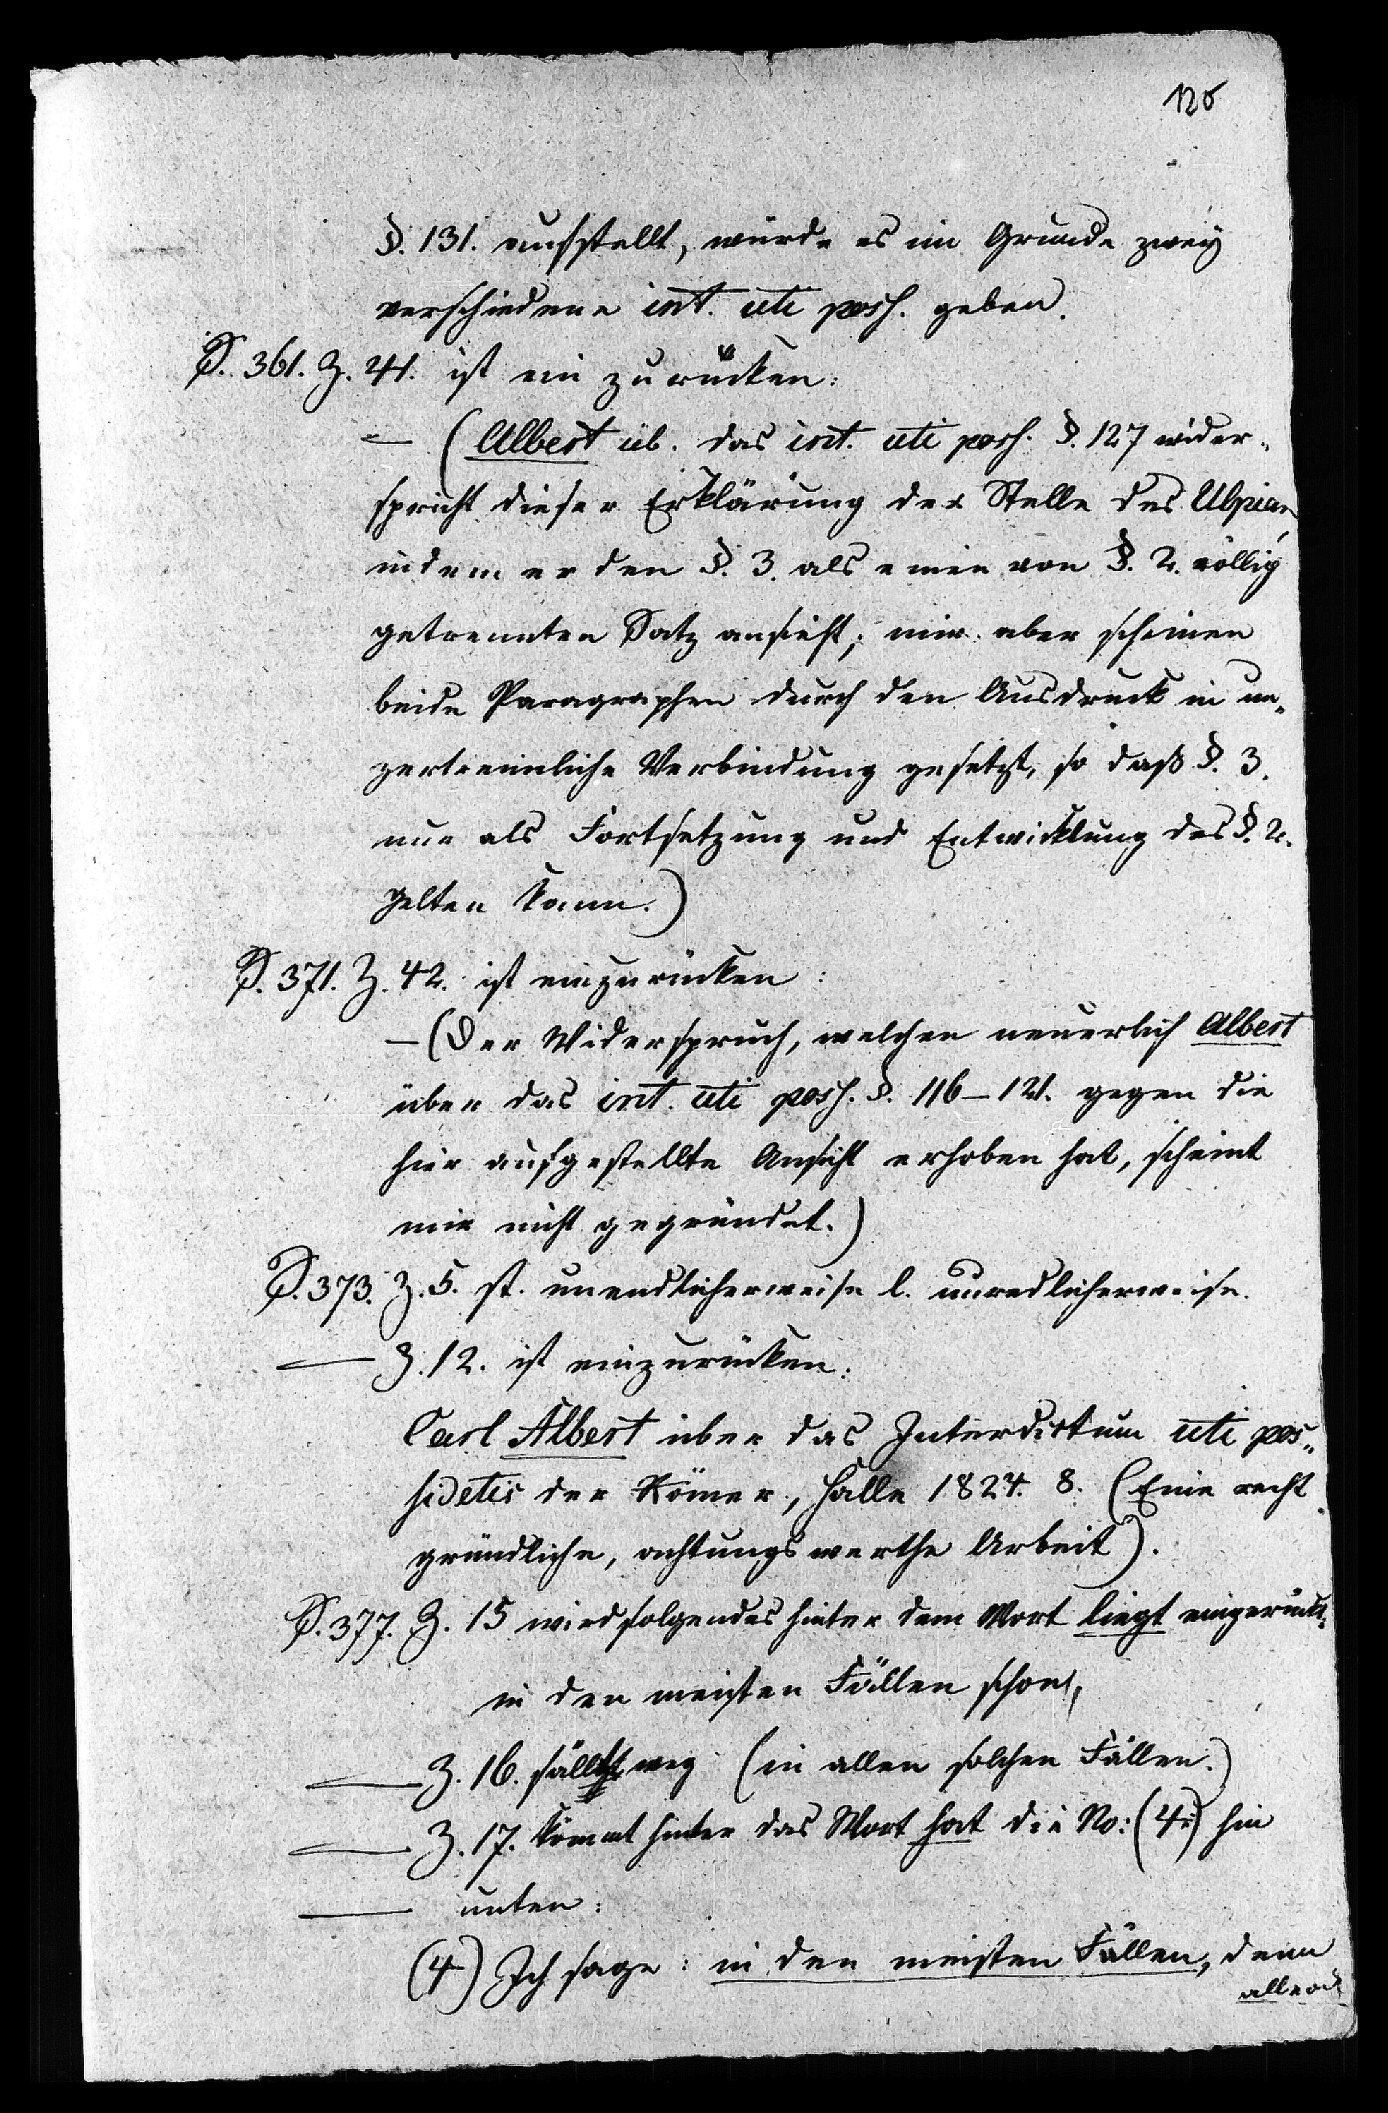 120
§. 131. aufstellt, würde es im Grunde zwey
verschiedene int. uti poss. geben.
S. 361. Z. 41. ist ein zurücken:
— (Albert üb. das int. uti poss. §. 127 wider-
spricht dieser Erklärung der Stelle des Ulpian,
indem er den §. 3. als einen von §. 2. völlig
getrennten Satz ansieht; mir aber scheinen
beide Paragraphen durch den Ausdruck in un-
zertrennliche Verbindung gesetzt, so daß §. 3.
nur als Fortsetzung und Entwicklung des §. 2.
gelten kann.)
S. 371. Z. 42. ist einzurücken:
— (Der Widerspruch, welchen neuerlich Albert
über das int. uti poss. §. 116–121. gegen die
hier aufgestellte Ansicht erhoben hat, scheint
mir nicht gegründet.)
S. 373. Z. 5. st. unendlicherweise l. unredlicherweise.
— Z. 12. ist einzurücken:
Carl Albert über das Interdictum uti pos-
sidetis der Römer, Halle 1824. 8. (Eine recht
gründliche, achtungswerthe Arbeit).
S. 377. Z. 15 wird folgendes hinter dem Wort liegt eingerückt.
in den meisten Fällen schon,
— Z. 16. fällt weg (in allen solchen Fällen.)
— Z. 17. kömmt hinter das Wort hat die No: (4) hin
— unten:
(4) Ich sage: in den meisten Fällen, denn